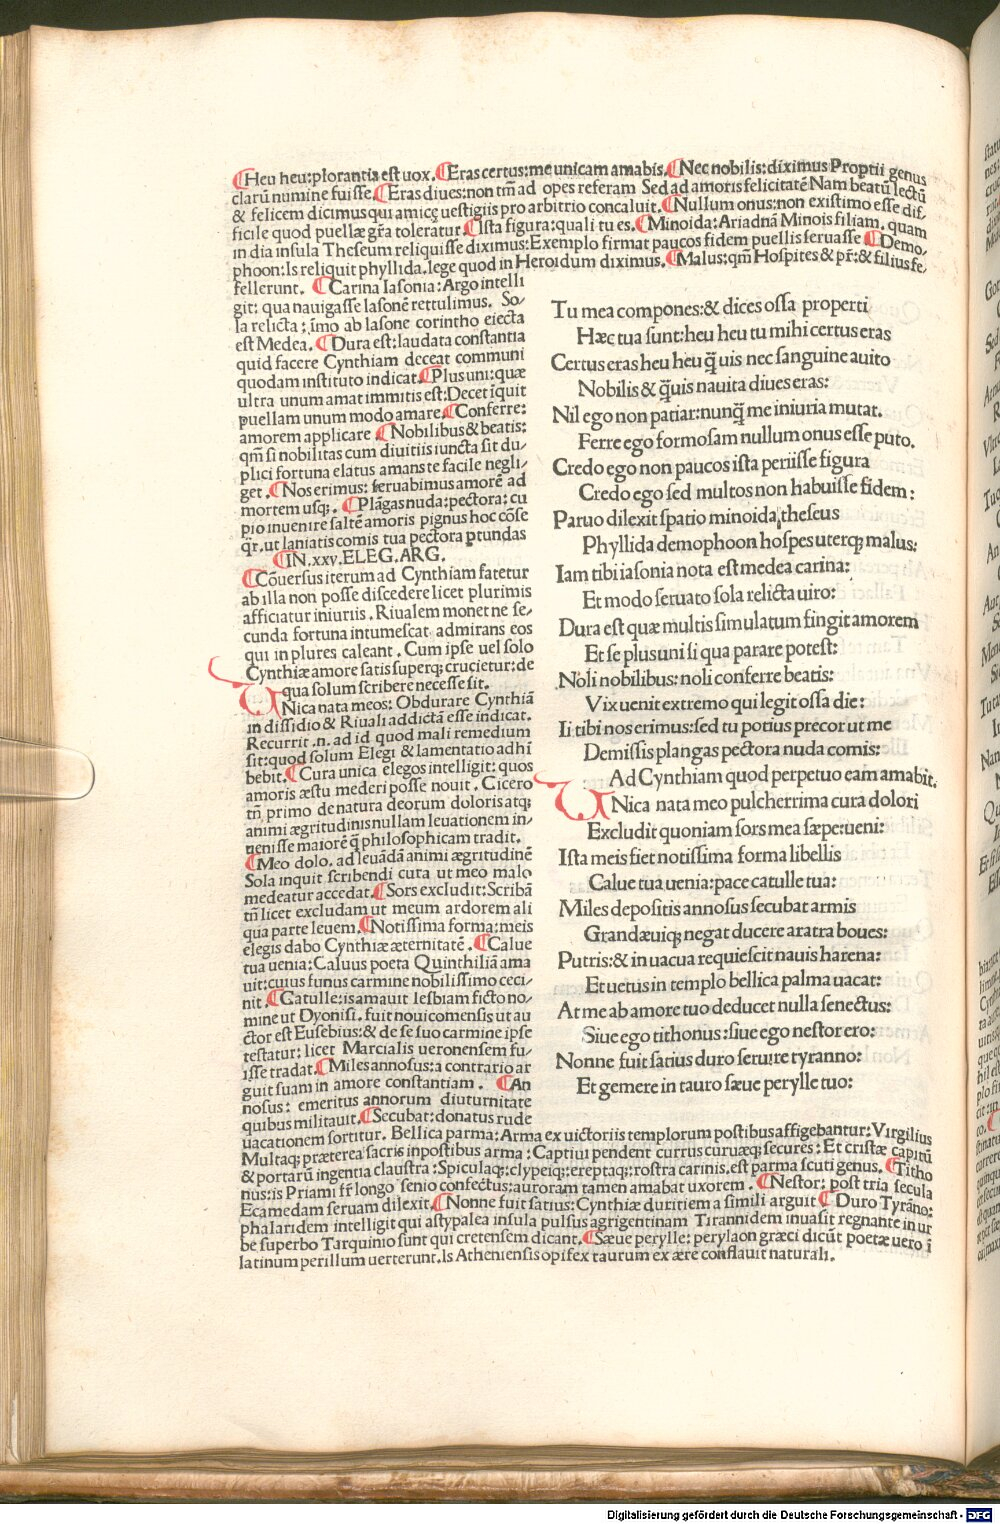 ¶Heu heu:plorantis est uox.¶Eras certus:me unicam amabis.¶Nec nobilis:diximus Proptii genus
clarū numine fuisse.¶Eras diues:non tm̄ ad opes referam Sed ad amoris felicitatē Nam beatū lectū
& felicem dicimus qui amicę uestigiis pro arbitrio concaluit.¶Nullum onus:non existimo esse dif,
ficile quod puellæ gr̄a toleratur.¶Ista figura:quali tu es.¶Minoida:Ariadnā Minois filiam, quam
in dia insula Theseum reliquisse diximus:Exemplo firmat paucos fidem puellis seruasse ¶Demo,
phoon:Is reliquit phyllida.lege quod in Heroidum diximus.¶Malus:qm̄ Hospites & pr̄:& filius fe,
fellerunt. ¶Carina Iasonia:Argo intelli
git: qua nauigasse Iasonē rettulimus. So,
la relicta: īmo ab Iasone corintho eiecta
est Medea. ¶Dura est:laudata constantia
quid facere Cynthiam deceat communi
quodam instituto indicat.¶Plus uni:quæ
ultra unum amat immitis est:Decet īquit
puellam unum modo amare.¶Conferre:
amorem applicare ¶Nobilibus & beatis:
qm̄ si nobilitas cum diuitiis iuncta sit du,
plici fortuna elatus amans te facile negli,
get.¶Nos erimus: seruabimus amorē ad
mortem usq;. ¶Plāgas nuda:pectora: cu
pio inuenire saltē amoris pignus hoc cōse
q̄r.ut laniatis comis tua pectora ptundas
¶IN.xxv.ELEG.ARG.
¶Cōuersus iterum ad Cynthiam fatetur
ab illa non posse discedere licet plurimis
afficiatur iniuriis.Riualem monet ne se,
cunda fortuna intumescat admirans eos
qui in plures caleant. Cum ipse uel solo
Cynthiæ amore satis superq; crucietur:de
qua solum scribere necesse sit.
UNica nata meos: Obdurare Cynthiā
in dissidio & Riuali addictā esse indicat.
Recurrit .n. ad id quod mali remedium
sit:quod solum Elegi & lamentatio adhi
bebit.¶Cura unica elegos intelligit: quos
amoris æstu mederi posse nouit. Cicero
tn̄ primo de natura deorum doloris atq;
animi ægritudinis nullam leuationem in,
uenisse maiorē q̄ philosophicam tradit.
¶Meo dolo. ad leuādā animi ægritudinē
Sola inquit scribendi cura ut meo malo
medeatur accedat.¶Sors excludit:Scribā
tn̄ licet excludam ut meum ardorem ali
qua parte leuem.¶Notissima forma:meis
elegis dabo Cynthiæ æternitatē.¶Calue
tua uenia:Caluus poeta Quinthiliā ama
uit:cuius funus carmine nobilissimo ceci,
nit.¶Catulle:is amauit lesbiam ficto no,
mine ut Dyonisi. fuit nouicomensis ut au
ctor est Eusebius:& de se suo carmine ipse
testatur: licet Marcialis ueronensem fu,
isse tradat.¶Miles annosus:a contrario ar
guit suam in amore constantiam. ¶An
nosus: emeritus annorum diuturnitate
quibus militauit.¶Secubat:donatus rude
uacationem sortitur. Bellica parma:Arma ex uictoriis templorum postibus affigebantur:Virgilius
Multaq; præterea sacris inpostibus arma:Captiui pendent currus curuæq; secures:Et cristæ capitū
& portarū ingentia claustra:Spiculaq;:clypeiq;:ereptaq;:rostra carinis.est parma scuti genus.¶Titho
nus:is Priami fr̄ longo senio confectus:auroram tamen amabat uxorem.¶Nestor: post tria secula
Ecamedam seruam dilexit.¶Nonne fuit satius: Cynthiæ duritiem a simili arguit ¶Duro Tyrāno:
phalaridem intelligit qui astypalea insula pulsus agrigentinam Tirannidem inuasit regnante in ur
be superbo Tarquinio sunt qui cretensem dicant.¶Sæue perylle:perylaon græci dicūt poetæ uero ī
latinum perillum uerterunt.Is Atheniensis opifex taurum ex ære conflauit naturali.
Tu mea compones:& dices ossa properti
Hæc tua sunt:heu heu tu mihi certus eras
Certus eras heu heu q̄uis nec sanguine auito
Nobilis & q̄uis nauita diues eras:
Nil ego non patiar:nunq̄ me iniuria mutat.
Ferre ego formosam nullum onus esse puto.
Credo ego non paucos ista periisse figura
Credo ego sed multos non habuisse fidem:
Paruo dilexit spatio minoida theseus
Phyllida demophoon hospes uterq; malus:
Iam tibi iasonia nota est medea carina:
Et modo seruato sola relicta uiro:
Dura est quæ multis simulatum fingit amorem
Et se plus uni si qua parare potest:
Noli nobilibus:noli conferre beatis:
Vix uenit extremo qui legit ossa die:
Ii tibi nos erimus:sed tu potius precor ut me
Demissis plangas pectora nuda comis:
Ad Cynthiam quod perpetuo eam amabit.
UNica nata meo pulcherrima cura dolori
Excludit quoniam sors mea sæpe:ueni:
Ista meis fiet notissima forma libellis
Calue tua uenia:pace catulle tua:
Miles depositis annosus secubat armis
Grandæuiq; negat ducere aratra boues:
Putris:& in uacua requiescit nauis harena:
Et uetus in templo bellica palma uacat:
At me ab amore tuo deducet nulla senectus:
Siue ego tithonus:siue ego nestor ero:
Nonne fuit satius duro seruire tyranno:
Et gemere in tauro sæue perylle tuo:
Digitalisierung gefördert durch die Deutsche Forschungsgemeinschaft - DFG